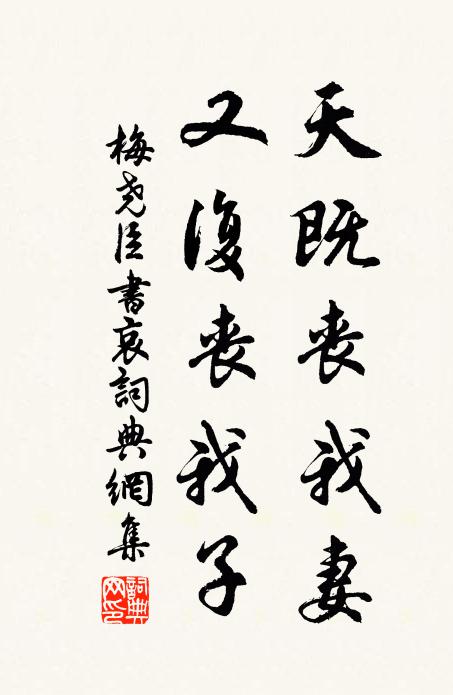 天既丧我妻
又復丧我子
梅尧臣書哀詞典網集
詞典網印